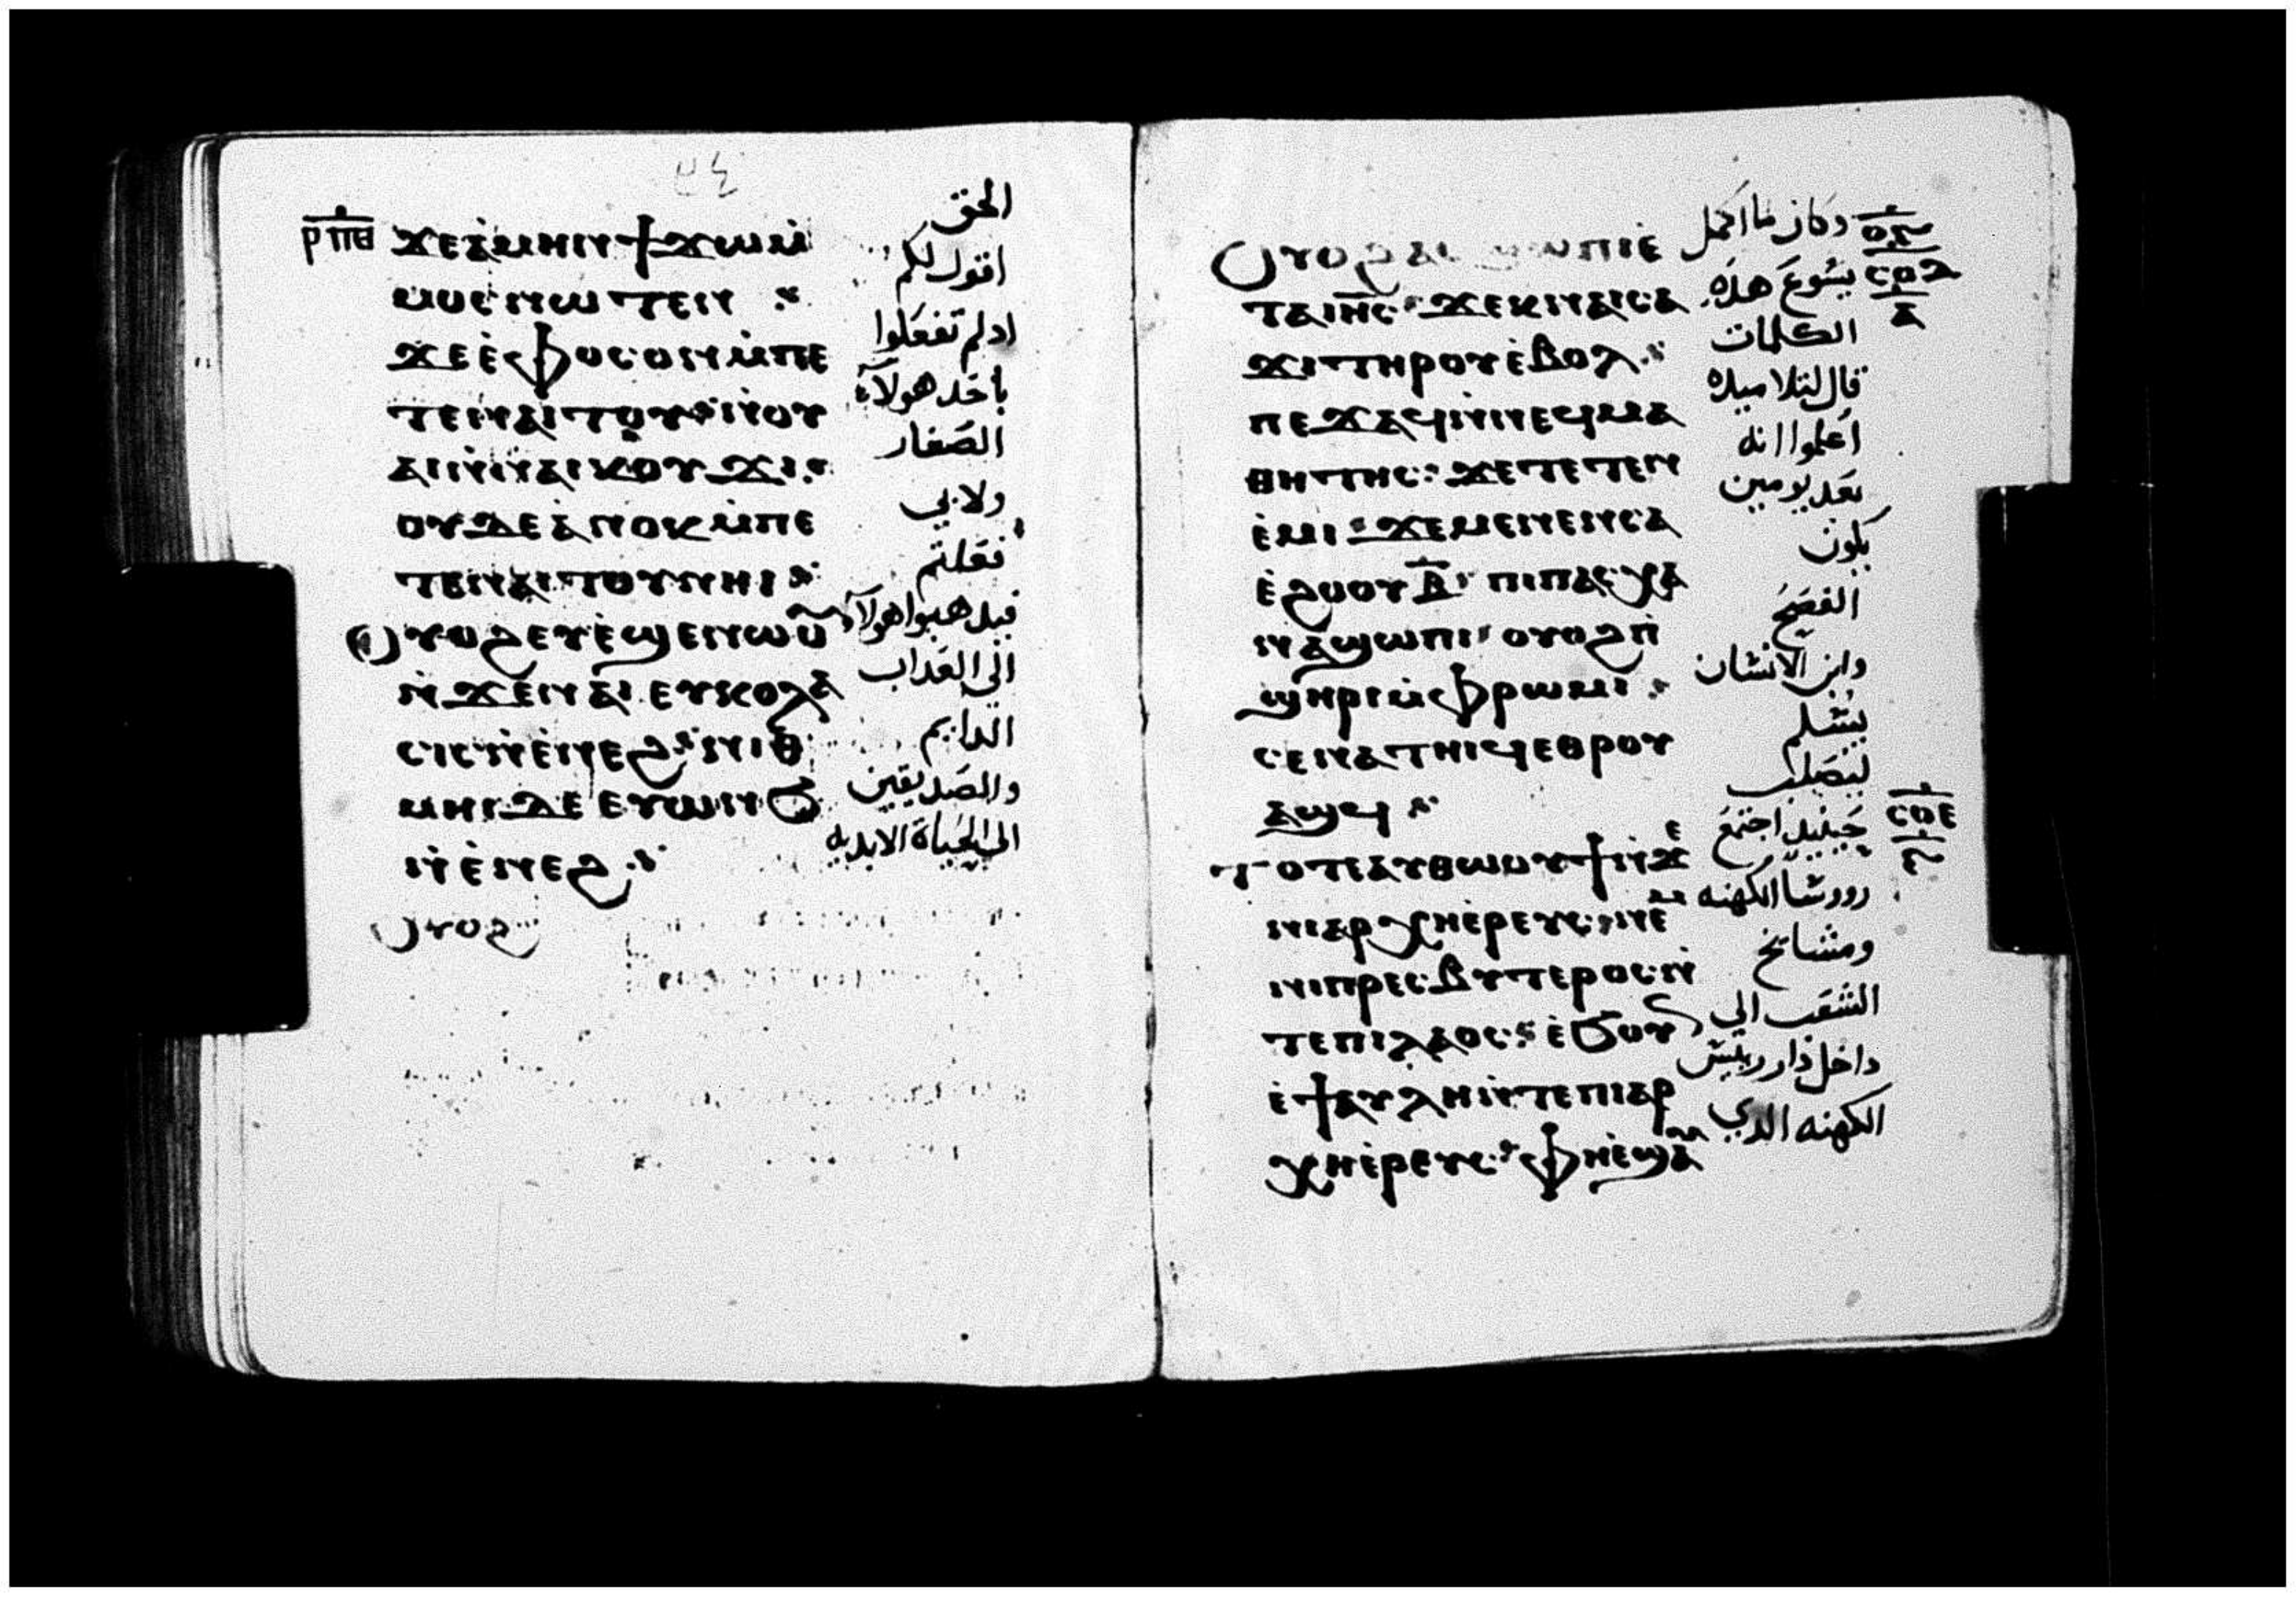 ⲣⲡⲑ
ϫⲉⲁ̀ⲙⲏⲛϯϫⲱⲙ̀
ⲙⲟⲥⲛⲱⲧⲉⲛ
ϫⲉⲉ̀ⲫⲟⲥⲟⲛⲙ̀ⲡⲉ
ⲧⲉⲛⲁⲓⲧⲟⲩ ⲛ̀ⲟⲩ
ⲁⲓⲛ̀ⲛⲁⲓⲕⲟⲩϫⲓ
ⲟⲩⲇⲉⲁ̀ⲛⲟⲕⲙ̀ⲡⲉ
ⲧⲉⲛⲁⲓⲧⲟⲩⲛⲏⲓ
ⲟⲩⲟϩⲉⲩⲉ̀ϣⲉⲛⲱⲟⲩ
ⲛ̀ϫⲉⲛⲁⲓ ⲉⲩⲕⲟⲗⲁ
ⲥⲓⲥⲛ̀ⲉ̀ⲛⲉϩ ⲛⲓⲑ
ⲙⲏⲓⲇⲉ ⲉⲩⲱⲛϧ
ⲛ̀ⲉ̀ⲛⲉϩ
ⲟⲩⲟϩ
الحق
اقول لكم
ادلم تفعلوا
باحد هولآء
الصغار
ولا بي
فعلتم
فيدهبوا هولآ
الي العداب
الدايم
والصديقين
الي الحياة الابديه
ⲟⲩⲟϩⲁⲥϣⲱⲡⲓⲉ̀
ⲧⲁⲓⲏ̅ⲥ̅ ϫⲉⲕⲛⲁⲓⲥⲁ
ϫⲓⲧⲏⲣⲟⲩⲉ̀ⲃⲟⲗ
ⲡⲉϫⲁϥⲛ̀ⲛⲉϥⲙⲁ
ⲑⲏⲧⲏⲥ ϫⲉⲧⲉⲧⲉⲛ
ⲉ̀ⲙⲓ ϫⲉⲙⲉⲛⲉⲛⲥⲁ
ⲉ̀ϩⲟⲟⲩⲃ̅ ⲡⲓⲡⲁⲥⲭⲁ
ⲛⲁϣⲱⲡⲓ ⲟⲩⲟϩⲡ̀
ϣⲏⲣⲓⲙ̀ⲫⲣⲱⲙⲓ
ⲥⲉⲛⲁⲧⲏⲓϥⲉⲑⲣⲟⲩ
ⲁϣϥ
ⲧⲟⲧⲉⲁⲩⲑⲱⲟⲩϯⲛ̀ϫⲉ
ⲛⲓⲁⲣⲭⲏⲉ̀ⲣⲉⲩⲥ ⲛⲉⲙ
ⲛⲓⲡⲣⲉⲥⲃⲩⲧⲉⲣⲟⲥⲛ̀
ⲧⲉⲡⲓⲗⲁⲟⲥ ⲉ̀ϧⲟⲩⲛ
ⲉ̀ϯⲁⲩⲗⲏⲛ̀ⲧⲉⲡⲓⲁⲣ
ⲭⲏⲉ̀ⲣⲉⲩⲥ ⲫⲏⲉ̀ϣⲁⲩ
وكان لما اكمل
يسوع هده
الكلمات
قال لتلاميده
اعلموا انه
بعد يومين
يكون
الفصح
وابن الانسان
يسلم
ليصلب
حينيد اجتمع
روسا الكهنه
ومشايخ
الشعب الي
داخل دار رييس
الكهنه الدي
ⲥⲟⲇ
ⲁ
ⲥⲟⲉ